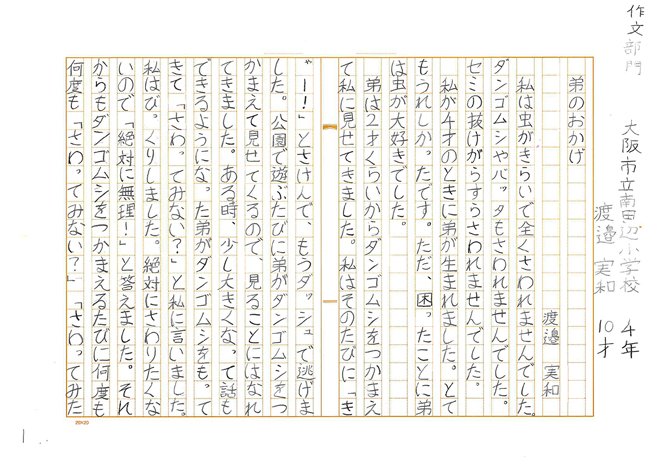 作文部門
大阪市立南田辺小学校 4年
渡邉 実和 10才
弟のおかげ
渡邉 実和
私は虫がきらいで全くさわれませんでした。
ダンゴムシやバッタもさわれませんでした。
セミの抜けがらすらさわれませんでした。
私が4才のときに弟が生まれました。とて
もうれしかったです。ただ、困ったことに弟
は虫が大好きでした。
弟は2才くらいからダンゴムシをつかまえ
て私に見せてきました。私はそのたびに「き
ゃー!」とさけんで、もうダッシュで逃げま
した。公園で遊ぶたびに弟がダンゴムシをつ
かまえて見せてくるので、見ることにはなれ
てきました。ある時、少し大きくなって話も
できるようになった弟がダンゴムシをもって
きて「さわってみない?」と私に言いました。
私はびっくりしました。絶対にさわりたくな
いので「絶対に無理!」と答えました。それ
からもダンゴムシをつかまえるたびに何度も
何度も「さわってみない?」「さわってみた
20×20
1